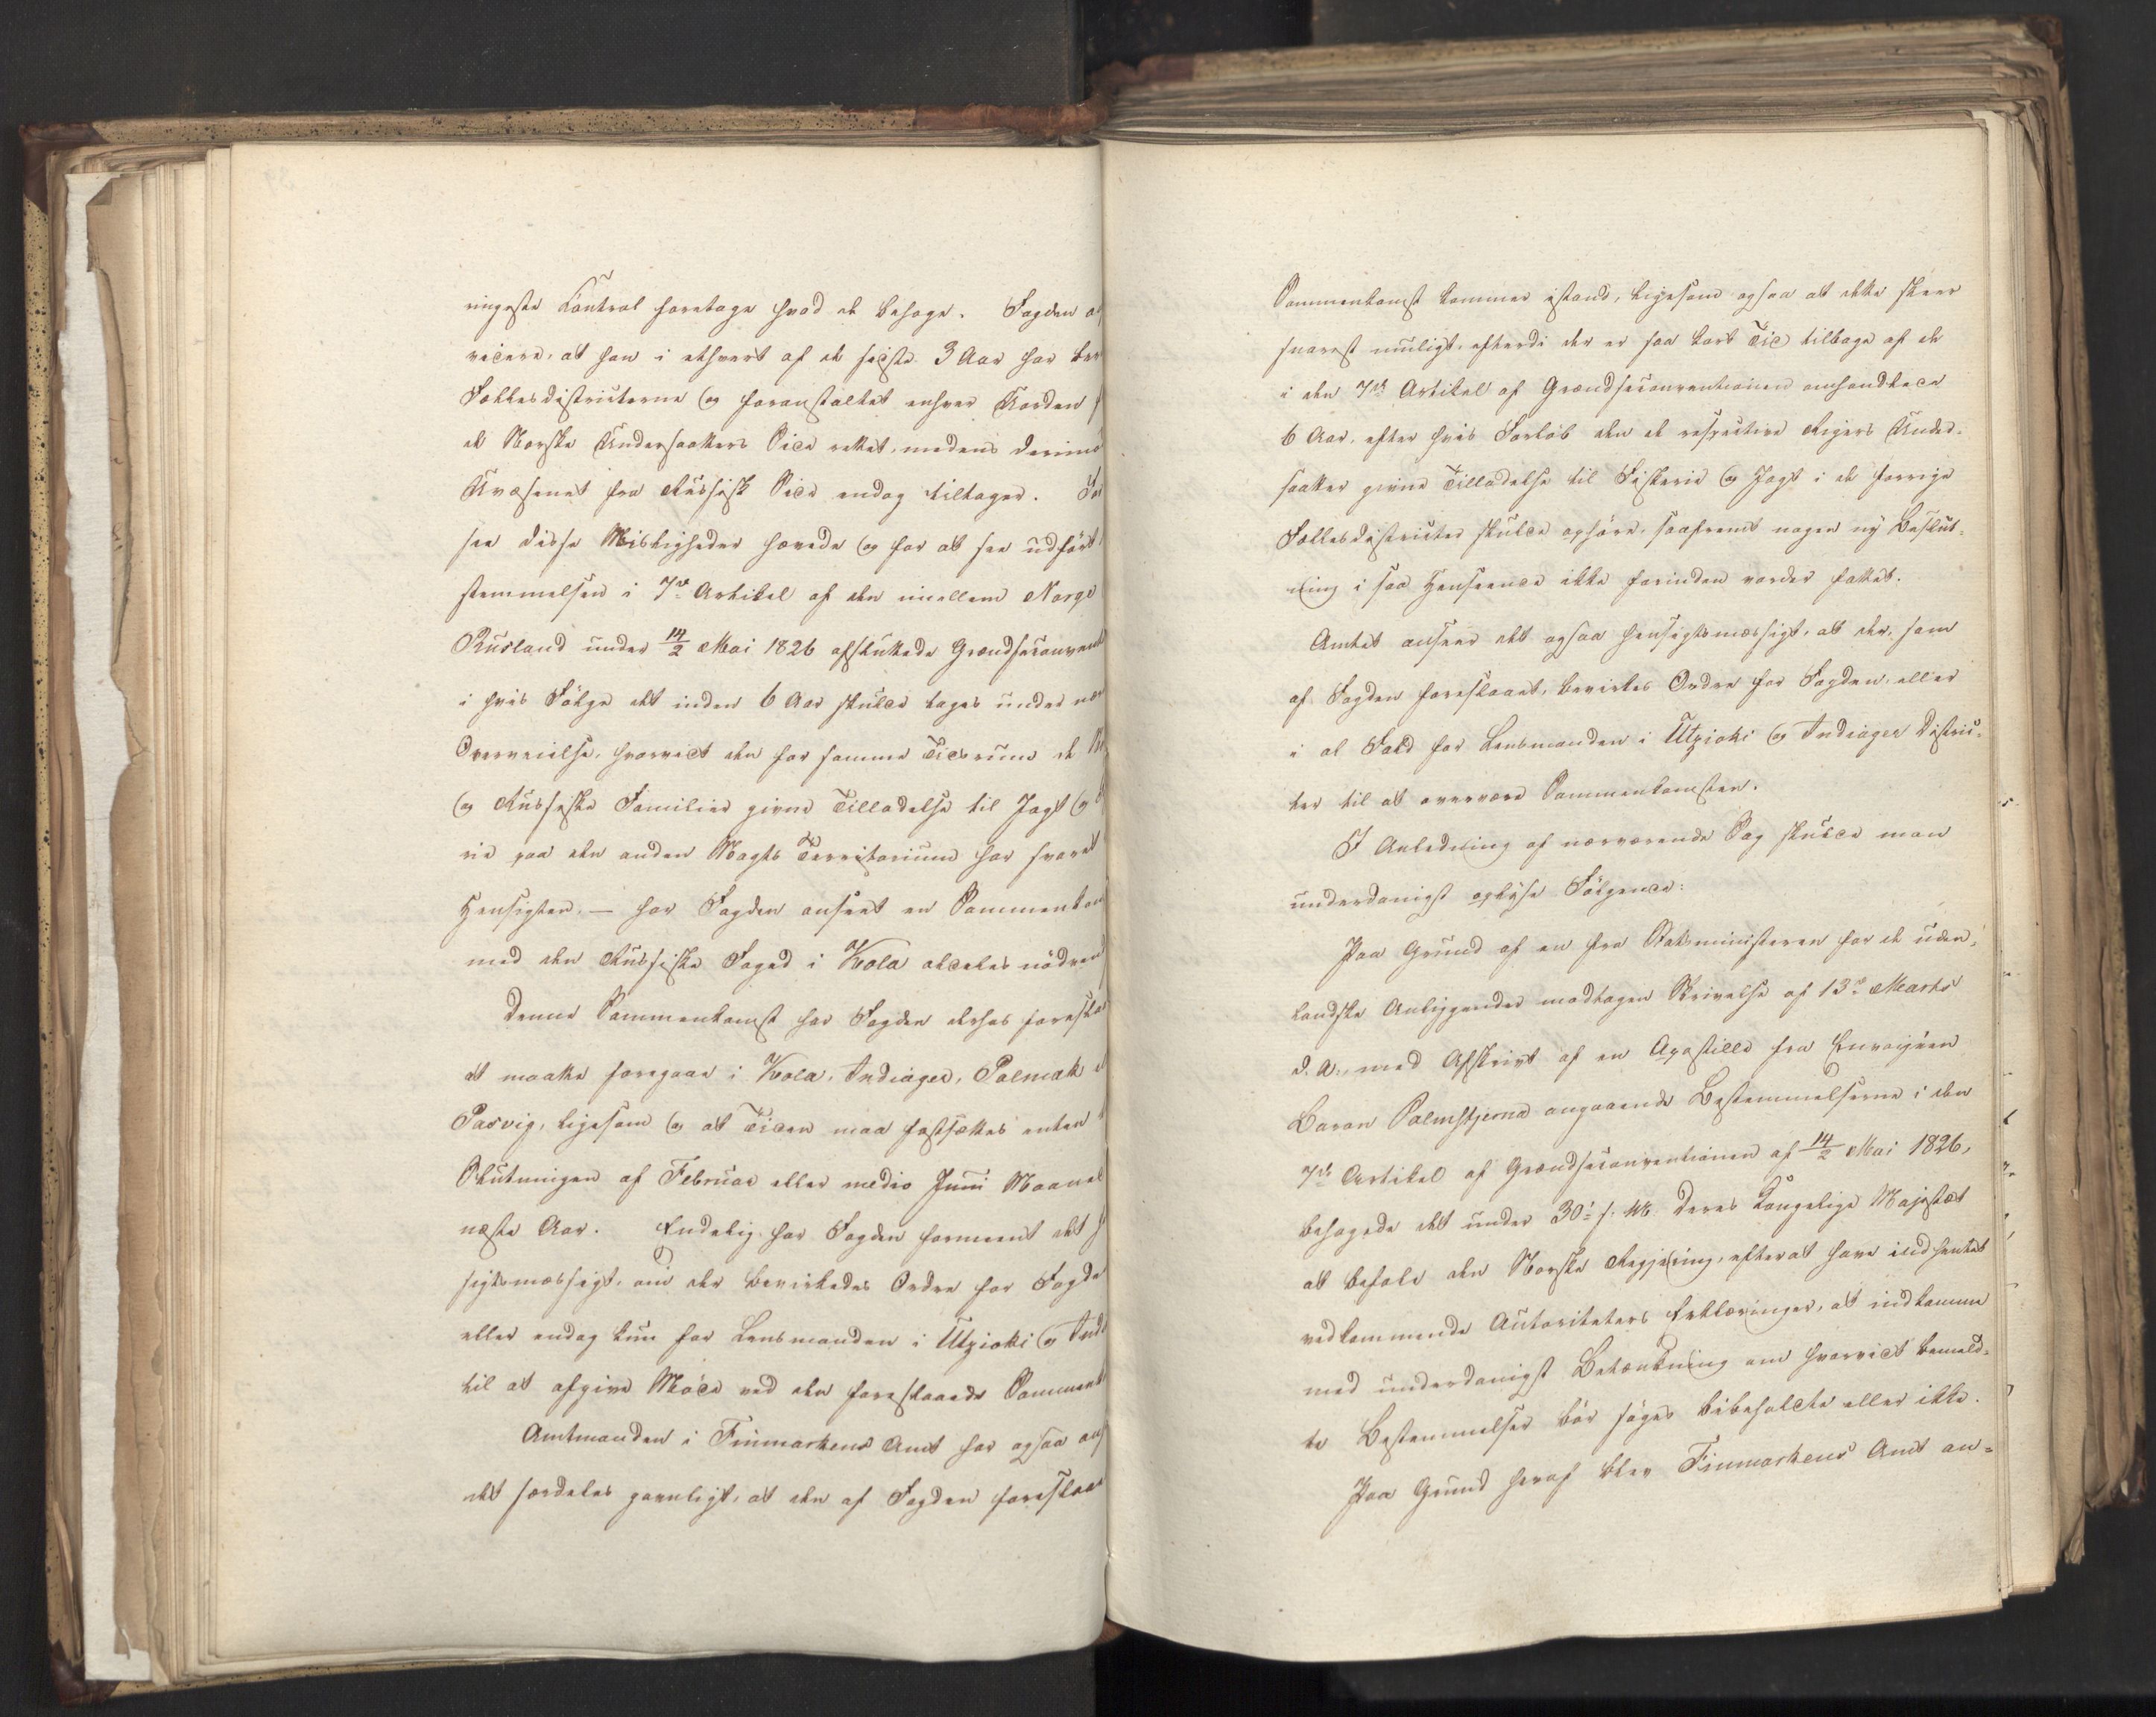 ringeste Control foretage hvad de behage. Fogden
videre, at han i ethvert af de sidste 3 Aar har
Fællesdistricterne og foranstaltet enhver Uorden
de Norske Undersaatters Side rettet, medens derimod
Uvæsenet fra Russisk Side endog tiltager.
see disse Misligheder hævede og for at see udført
stemmelsen i 7de Artikel af den imellem Norge
Rusland under 14/2 Mai 1826 afsluttede Grændseconvent
i hvis Følge det inden 6 Aar skulde tages under
Overveielse, hvorvidt den for samme Tidsrum de
og Russiske Familier givne Tilladelse til Jagt og
rie paa den anden Magts Territorium har svaret
Hensigten, — har Fogden anseet en Sammenkom
med den Russiske Foged i Kola aldeles nødven
Denne Sammenkomst har Fogden derhos foreslaa
at maatte foregaae i Kola, Indiager, Polmak
Pasvig, ligesom og at Tiden maa fastsættes enten
Slutningen af Februar eller medio Juni Maaned
næste Aar. Endelig har Fogden formeent det
sigtsmæssigt, om der bevirkedes Ordre for Fogde
eller endog kun for Lensmanden i Utzioki og Indi
til at afgive Møde ved den foreslaaede Samment
Amtmanden i Finmarkens Amt har ogsaa
det særdeles gavnligt, at den af Fogden foreslaa
Sammenkomst kommer istand, ligesom ogsaa at dette skeer
snarest muligt, efterdi der er saa kort Tid tilbage af de
i den 7de Artikel af Grændseconventionen omhandlede
6 Aar, efter hvis Forløb den de respective Rigers Under-
saatter givne Tilladelse til Fiskerie og Jagt i de forrige
Fællesdistricter skulde ophøre, saafremt nogen ny Beslut-
ning i saa Henseende ikke forinden vorder fattet.
Amtet anseer det ogsaa hensigtsmæssigt, at der, som
af Fogden foreslaaet, bevirkes Ordre for Fogden, eller
i al Fald for Lensmanden i Utzioki og Indiager Distric-
ter til at overvære Sammenkomsten.
I Anledning af nærværende Sag skulde man
underdanigst oplyse Følgende:
Paa Grund af en fra Statsministeren for de uden-
landske Anliggender modtagen Skrivelse af 13de Marts
d. A., med Afskrivt af en Apostille fra Envoiyéen
Baron Palmstjerna angaaende Bestemmelserne i den
7de Artikel af Grændseconventionen af 14/2 Mai 1826,
behagede det under 30te s. M. Deres Kongelige Majestæt
at befale den Norske Regjering, efterat have indhentet
vedkommende Autoriteters Erklæringer, at indkomme
med underdanigst Betænkning om hvorvidt bemeld-
te Bestemmelser bør søges bibeholdte eller ikke.
Paa Grund heraf blev Finmarkens Amt an-